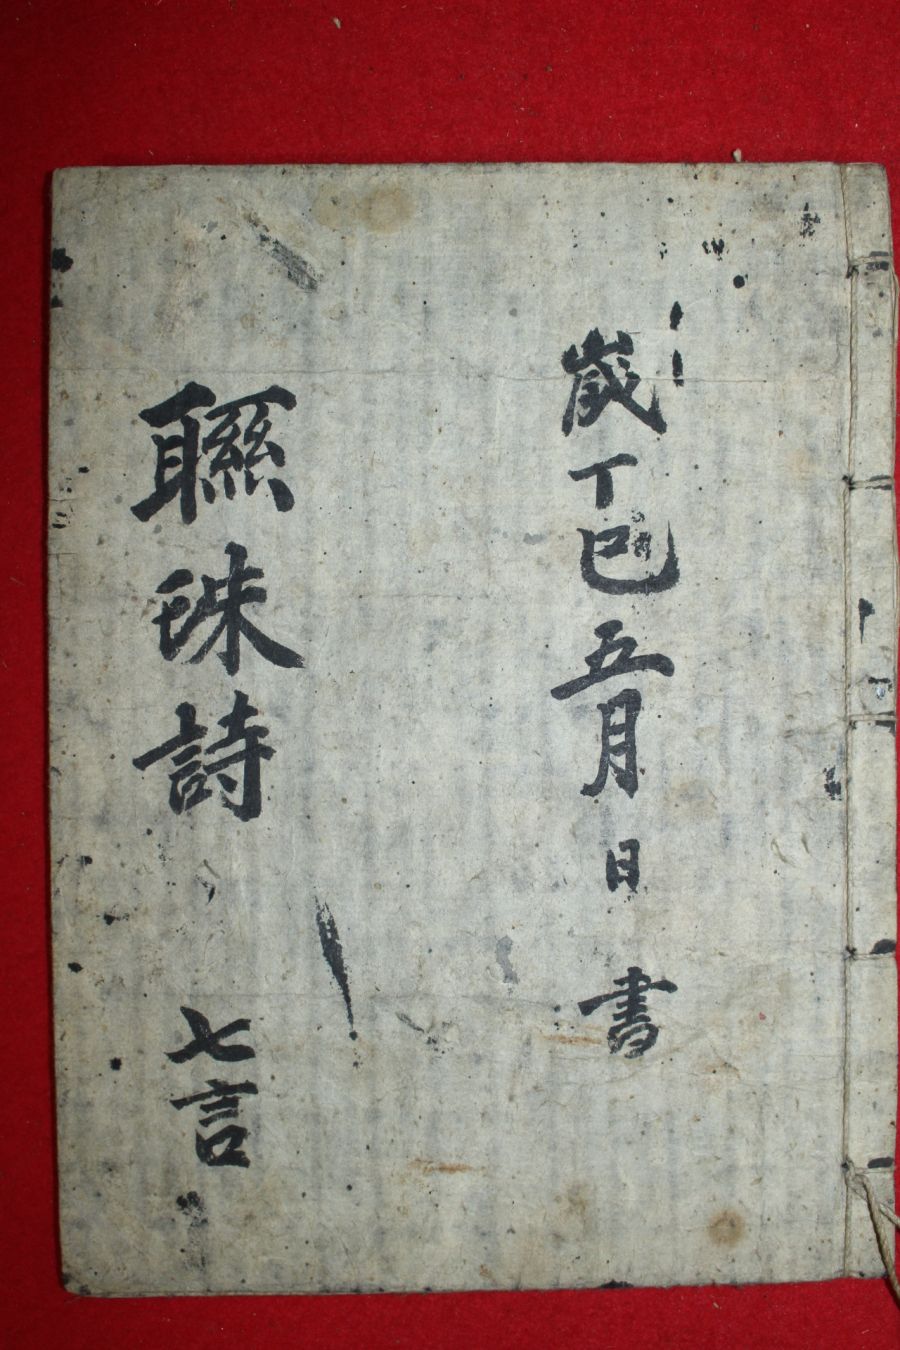 歲丁巳五月日書
聯珠詩 七言